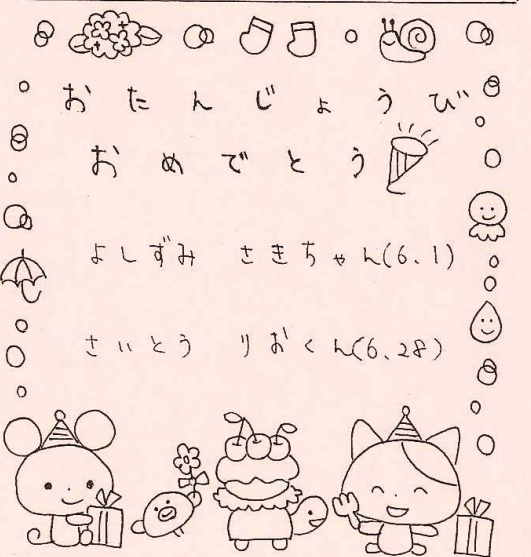 おたんじょうび
おめでとう
よしずみ　さきちゃん(6.1)
さいとう　りおくん(6.28)